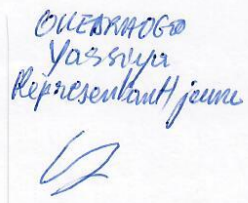 OUEDRAOGO
Yassiya
Représentant jeune